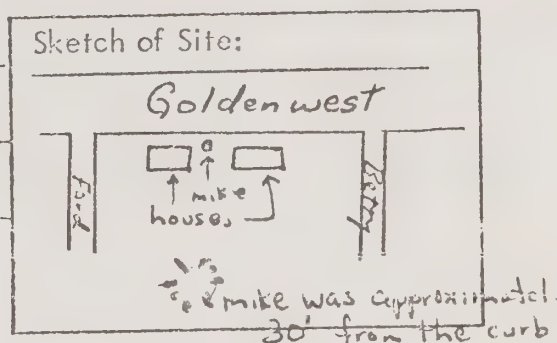 Sketch of Site:
Goldenwest
Ford
mike
houses
Betty
mike was approximatel
30' from the curb